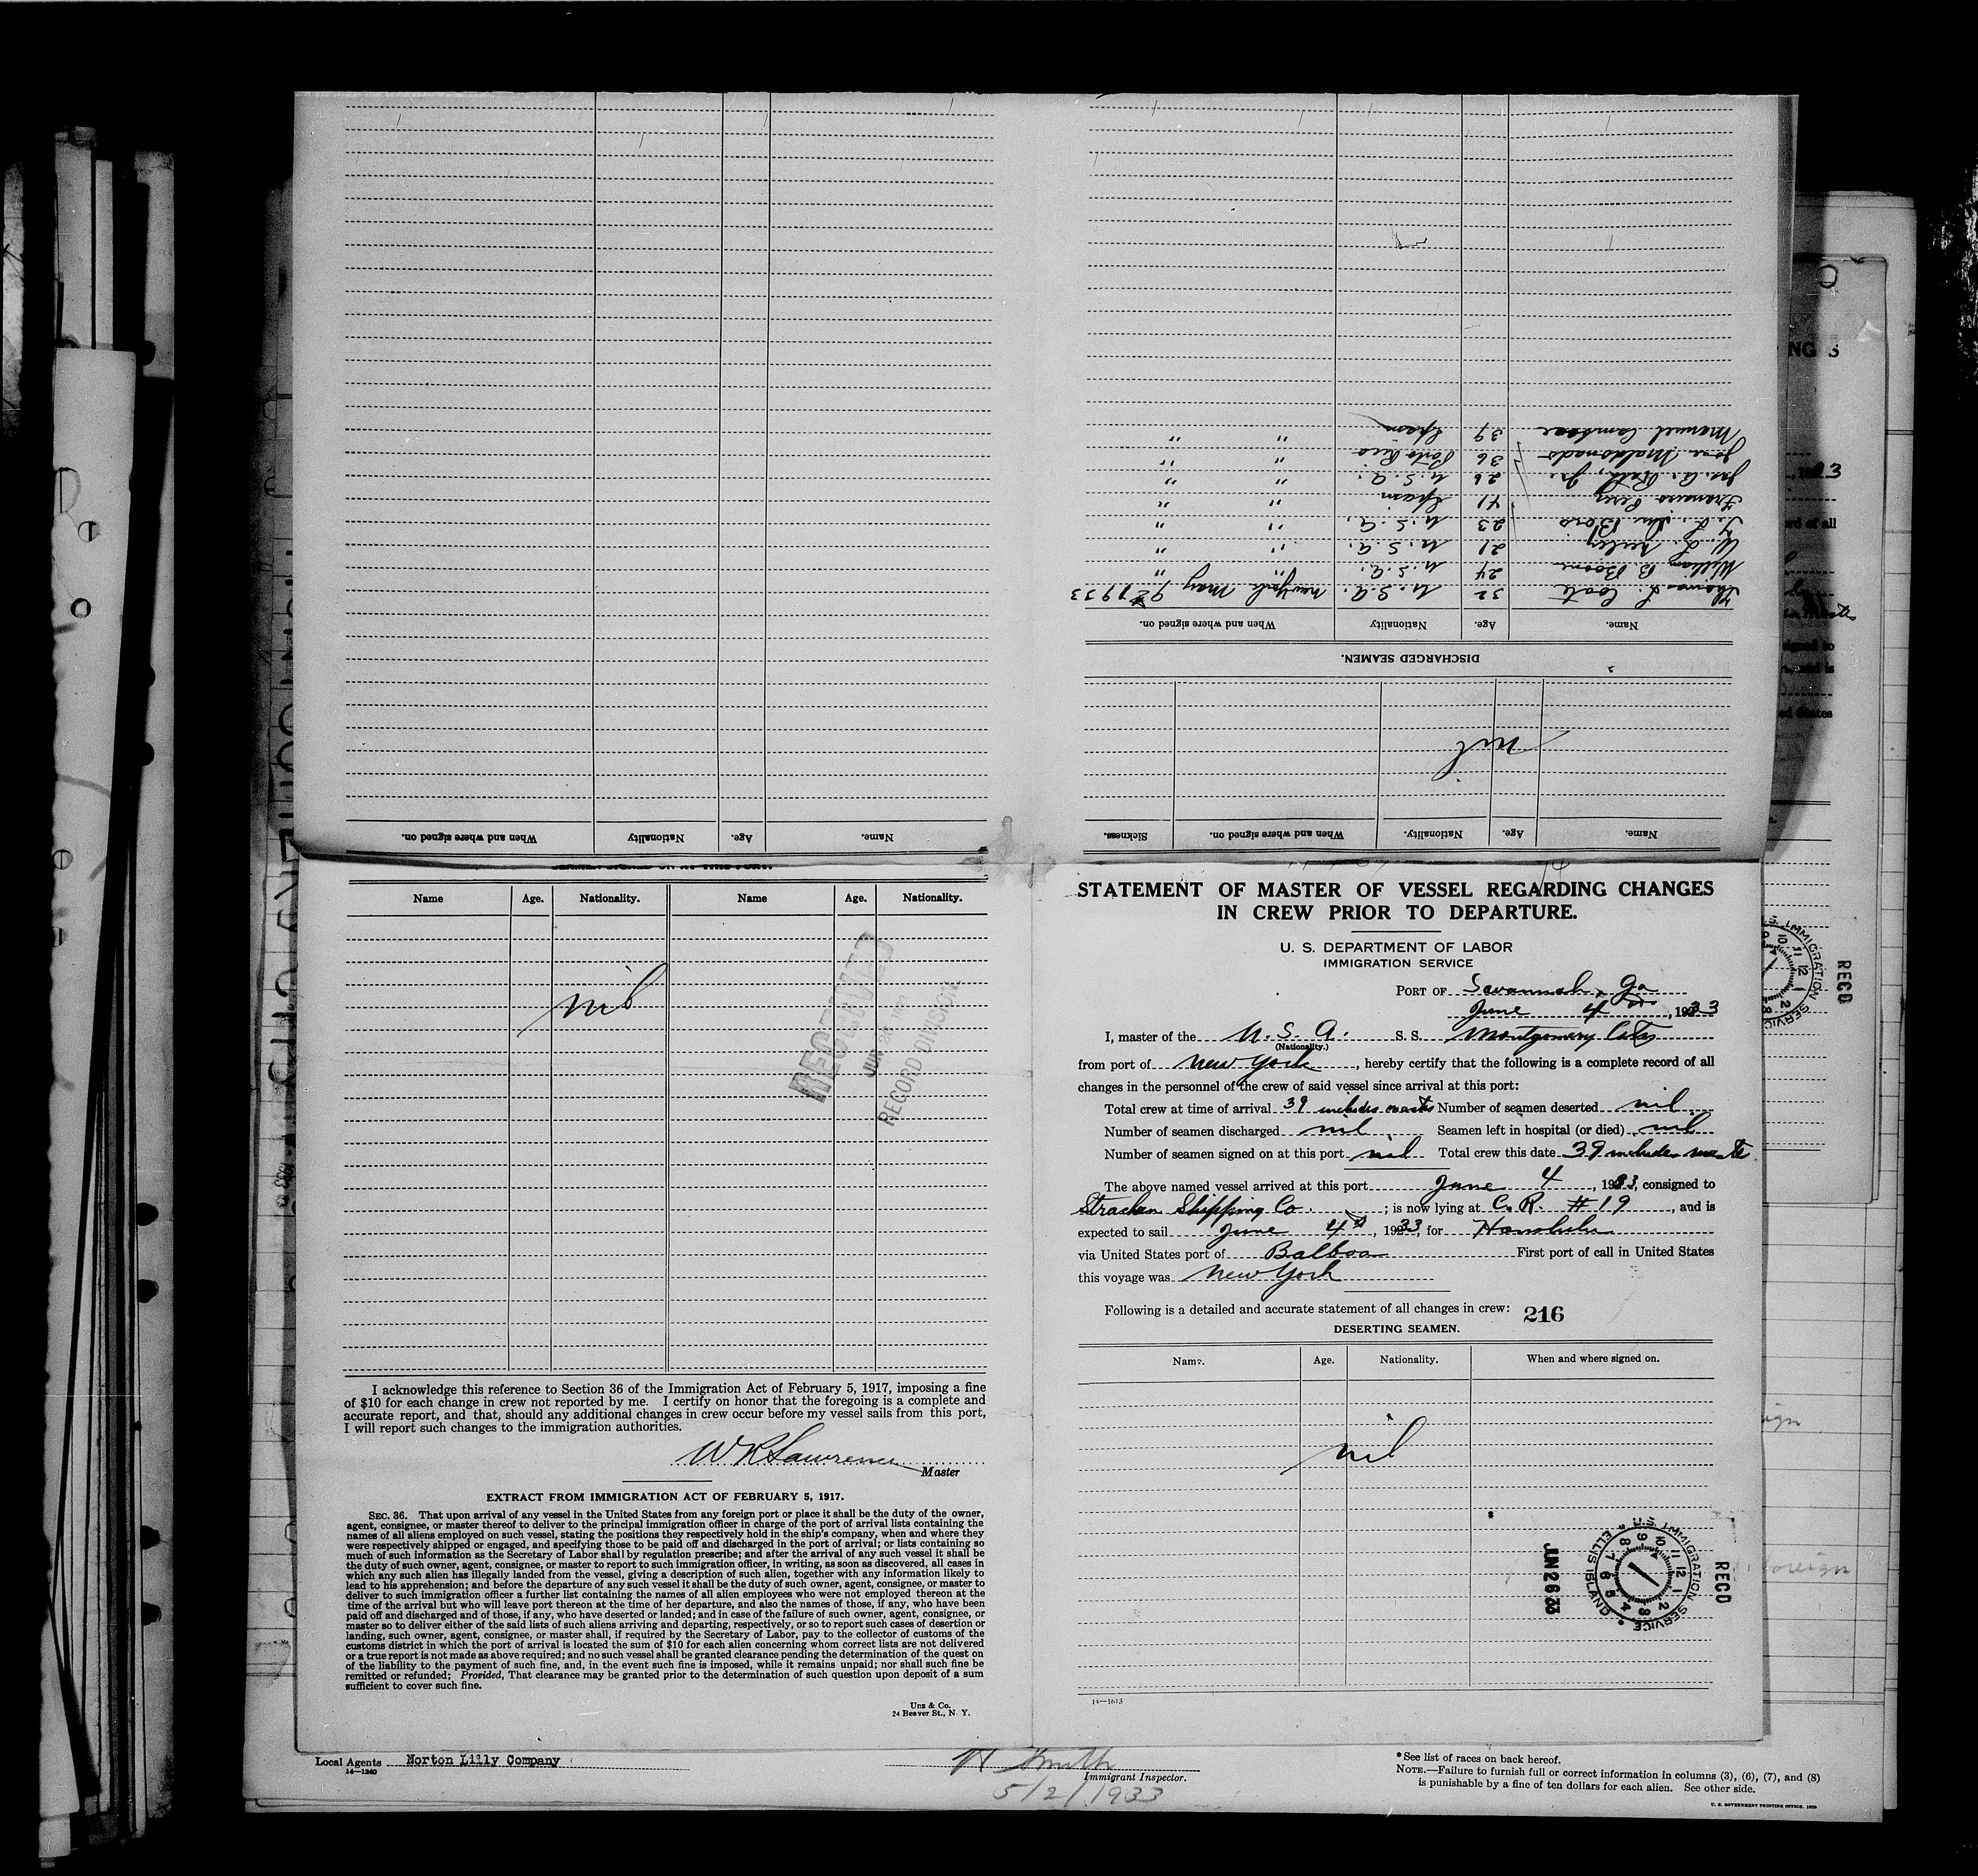 Name. Age. Nationality When and where signed on.
Name. Age. Nationality. When and where signed on. Sickness.
nil
DISCHARGED SEAMEN.
Name. Age. Nationality When and where signed on.
Thomas L. Coate 32 U.S.A. New York May 9 1933
William B. Boone 24 U.S.A. " "
W. L. 21 U.S.A. " "
23 U.S.A. " "
Francisco Perez 41 Spain " "
Jr. 26 U.S.A. " "
Jose Maldonado 36 Porto Rico " "
Manuel 39 Spain " "
Name Age. Nationality. Name Age. Nationality.
nil
RECEIVED
RECORD DIVISION
I acknowledge this reference to Section 36 of the Immigration Act of February 5, 1917, imposing a fine
of $10 for each change in crew not reported by me. I certify on honor that the foregoing is a complete and
accurate report, and that, should any additional changes in crew occur before my vessel sails from this port,
I will report such changes to the immigration authorities.
W R Lawrence
Master
EXTRACT FROM IMMIGRATION ACT OF FEBRUARY 5, 1917.
SEC. 36. That upon arrival of any vessel in the United States from any foreign port or place it shall be the duty of the owner,
agent, consignee, or master thereof to deliver to the principal immigration officer in charge of the port of arrival lists containing the
names of all aliens employed on such vessel, stating the positions they respectively hold in the ship's company, when and where they
were respectively shipped or engaged, and specifying those to be paid off and discharged in the port of arrival; or lists containing so
much of such information as the Secretary of Labor shall by regulation prescribe; and after the arrival of any such vessel it shall be
the duty of such owner, agent, consignee, or master to report to such immigration officer, in writing, as soon as discovered, all cases in
which any such alien has illegally landed from the vessel, giving a description of such alien, together with any information likely to
lead to his apprehension; and before the departure of any such vessel it shall be the duty of such owner, agent, consignee, or master to
deliver to such immigration officer a further list containing the names of all alien employees who were not employed thereon at the
time of the arrival but who will leave port thereon at the time of her departure, and also the names of those, if any, who have been
paid off and discharged and of those, if any, who have deserted or landed; and in case of the failure of such owner, agent, consignee, or
master so to deliver either of the said lists of such aliens arriving and departing, respectively, or so to report such cases of desertion or
landing, such owner, agent, consignee, or master shall, if required by the Secretary of Labor, pay to the collector of customs of the
customs district in which the port of arrival is located the sum of $10 for each alien concerning whom correct lists are not delivered
or a true report is not made as above required; and no such vessel shall be granted clearance pending the determination of the quest on
of the liability to the payment of such fine, and, in the event such fine is imposed, while it remains unpaid; nor shall such fine be
remitted or refunded; Provided, That clearance may be granted prior to the determination of such question upon deposit of a sum
sufficient to cover such fine.
Unz & Co.
24 Beaver St., N. Y.
STATEMENT OF MASTER OF VESSEL REGARDING CHANGES
IN CREW PRIOR TO DEPARTURE.
U. S. DEPARTMENT OF LABOR
IMMIGRATION SERVICE
PORT OF Savannah, Ga
June 4th, 1933
I, master of the U.S.A. S. S. Montgomery City
(Nationality.)
from port of New York, hereby certify that the following is a complete record of all
changes in the personnel of the crew of said vessel since arrival at this port:
Total crew at time of arrival 39 includes master Number of seamen deserted nil
Number of seamen discharged nil Seamen left in hospital (or died) nil
Number of seamen signed on at this port nil Total crew this date 39 includes master
The above named vessel arrived at this port June 4, 1933, consigned to
Strachan Shipping Co.; is now lying at C. R. #19, and is
expected to sail June 4th, 1933, for Honolulu
via United States port of Balboa First port of call in United States
this voyage was New York
Following is a detailed and accurate statement of all changes in crew: 216
DESERTING SEAMEN.
Name. Age. Nationality. When and where signed on.
nil
14—1613
RECD
U.S. IMMIGRATION SERVICE
ELLIS ISLAND
JUN 26 33
Local Agents Norton Lilly Company
14—1240
H Smith
Immigrant Inspector.
5/2/1933
*See list of races on back hereof.
NOTE.—Failure to furnish full or correct information in columns (3), (6), (7), and (8)
is punishable by a fine of ten dollars for each alien. See other side.
U. S. GOVERNMENT PRINTING OFFICE. 1929